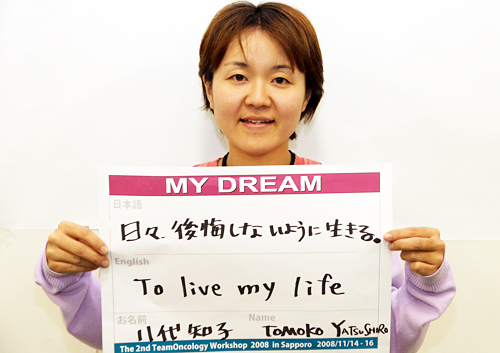 MY DREAM
日本語
日々、後悔しないように生きる。
English
To live my life
お名前 Name
八代 知子 TOMOKO YATSUSHIRO
The 2nd TeamOncology Workshop 2008 in Sapporo 2008/11/14 - 16